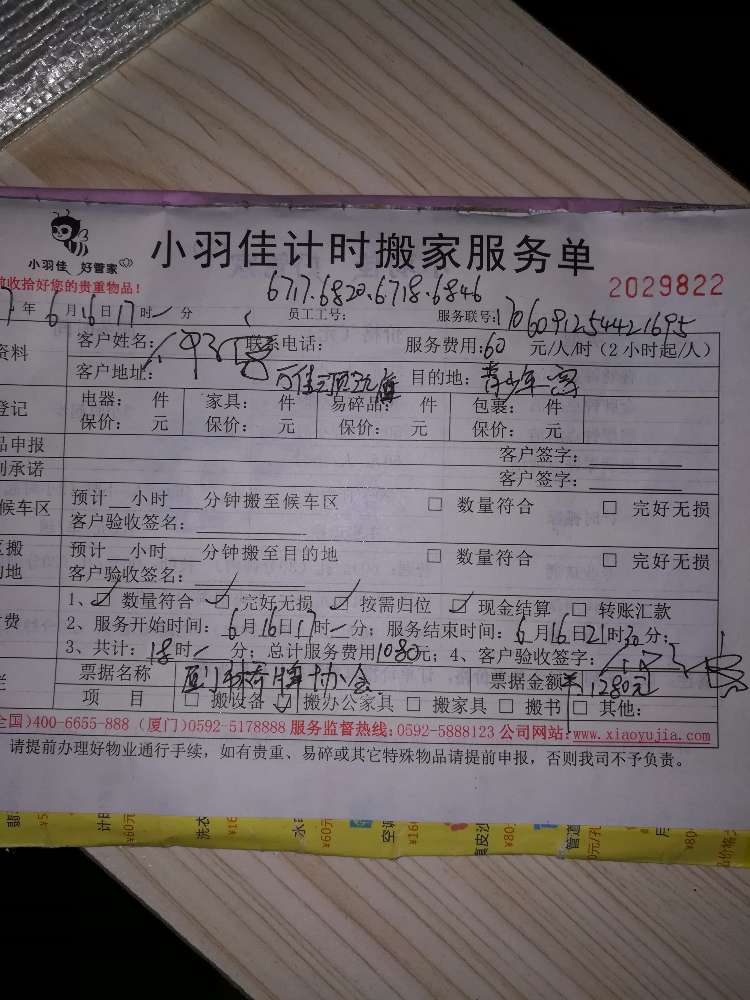 小羽佳计时搬家服务单
小羽佳 好管家
收拾好您的贵重物品!
6717.6820.6718.6846
2029822
年6月16日17时一分 员工工号: 服务联号:1706091254421695
资料 客户姓名: 联系电话: 服务费用:60元/人/时(2小时起/人)
客户地址: 目的地:青少年宫
登记 电器: 件 家具: 件 易碎品: 件 包裹: 件
保价: 元 保价: 元 保价: 元 保价: 元
品申报 客户签字:
别承诺 客户签字:
候车区 预计 小时 分钟搬至候车区 □ 数量符合 □ 完好无损
客户验收签名:
搬 预计 小时 分钟搬至目的地 □ 数量符合 □ 完好无损
地 客户验收签名:
1、☑ 数量符合 ☑ 完好无损 ☑ 按需归位 ☑ 现金结算 □ 转账汇款
费 2、服务开始时间:6月16日17时一分;服务结束时间:6月16日21时30分;
3、共计:18时一分;总计服务费用1080元;4、客户验收签字:
票据名称 厦门 牌协会 票据金额 1280元
项 目 □ 搬设备 ☑ 搬办公家具 □ 搬家具 □ 搬书 □ 其他:
全国)400-6655-888 (厦门)0592-5178888 服务监督热线:0592-5888123 公司网站:www.xiaoyujia.com
请提前办理好物业通行手续,如有贵重、易碎或其它特殊物品请提前申报,否则我司不予负责。